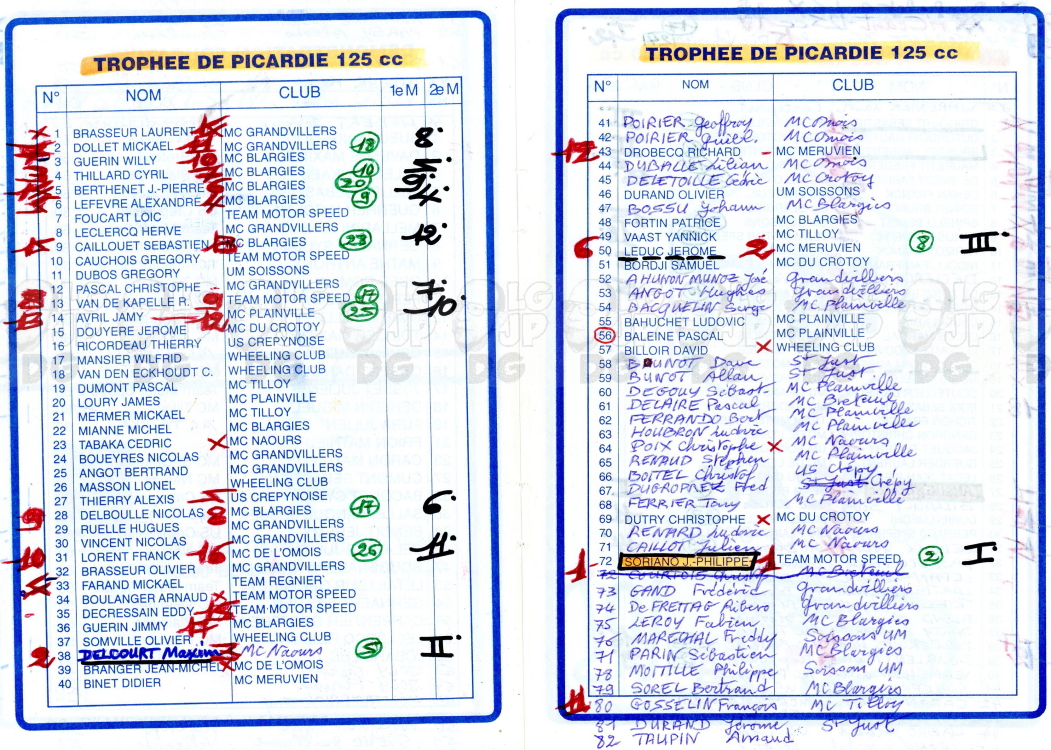 TROPHEE DE PICARDIE 125 cc
N° NOM CLUB 1e M 2e M
1 BRASSEUR LAURENT MC GRANDVILLERS
2 DOLLET MICKAEL MC GRANDVILLERS 18 8
3 GUERIN WILLY 10 MC BLARGIES
4 THILLARD CYRIL MC BLARGIES 10
5 BERTHENET J.-PIERRE MC BLARGIES 20
6 LEFEVRE ALEXANDRE MC BLARGIES 9
7 FOUCART LOIC TEAM MOTOR SPEED
8 LECLERCQ HERVE MC GRANDVILLERS
9 CAILLOUET SEBASTIEN MC BLARGIES 23 12
10 CAUCHOIS GREGORY TEAM MOTOR SPEED
11 DUBOS GREGORY UM SOISSONS
12 PASCAL CHRISTOPHE MC GRANDVILLERS
13 VAN DE KAPELLE R. 9 TEAM MOTOR SPEED 7
14 AVRIL JAMY 12 MC PLAINVILLE 25 10
15 DOUYERE JEROME MC DU CROTOY
16 RICORDEAU THIERRY US CREPYNOISE
17 MANSIER WILFRID WHEELING CLUB
18 VAN DEN ECKHOUDT C. WHEELING CLUB
19 DUMONT PASCAL MC TILLOY
20 LOURY JAMES MC PLAINVILLE
21 MERMER MICKAEL MC TILLOY
22 MIANNE MICHEL MC BLARGIES
23 TABAKA CEDRIC X MC NAOURS
24 BOUEYRES NICOLAS MC GRANDVILLERS
25 ANGOT BERTRAND MC GRANDVILLERS
26 MASSON LIONEL WHEELING CLUB
27 THIERRY ALEXIS US CREPYNOISE
28 DELBOULLE NICOLAS 8 MC BLARGIES 17 6
29 RUELLE HUGUES MC GRANDVILLERS
30 VINCENT NICOLAS MC GRANDVILLERS
10 31 LORENT FRANCK 16 MC DE L'OMOIS 26 11
32 BRASSEUR OLIVIER MC GRANDVILLERS
33 FARAND MICKAEL TEAM REGNIER
34 BOULANGER ARNAUD X TEAM MOTOR SPEED
35 DECRESSAIN EDDY TEAM MOTOR SPEED
36 GUERIN JIMMY MC BLARGIES
37 SOMVILLE OLIVIER WHEELING CLUB
2 38 DELCOURT Maxim MC Naours 5 II
39 BRANGER JEAN-MICHEL MC DE L'OMOIS
40 BINET DIDIER MC MERUVIEN
TROPHEE DE PICARDIE 125 cc
N° NOM CLUB
41 POIRIER Geoffroy MC Omois
42 POIRIER Guiel. MC Omois
12 43 DROBECQ RICHARD - MC MERUVIEN
44 DUBALLE Lilian MC Omois
45 DELETOILLE Cédric MC Crotoy
46 DURAND OLIVIER UM SOISSONS
47 BOSSU Yohann MC Blargies
48 FORTIN PATRICE MC BLARGIES
49 VAAST YANNICK MC TILLOY
6 50 LEDUC JEROME 2 MC MERUVIEN 8 III
51 BORDJI SAMUEL MC DU CROTOY
52 AHUNON MUNOZ José Grandvilliers
53 ANGOT Hughes Grandvilliers
54 BACQUELIN Serge MC Plainville
55 BAHUCHET LUDOVIC MC PLAINVILLE
56 BALEINE PASCAL MC PLAINVILLE
57 BILLOIR DAVID X WHEELING CLUB
58 BUNOT Dave St Just
59 BUNOT Allan St Just.
60 DEGOUY Sébast MC Plainville
61 DELAIRE Pascal MC Breteuil
62 FERRANDO Bort MC Plainville
63 HOUBRON Ludovic MC Plainville
64 POIX Christophe X MC Naours
65 RENAUD Stephen MC Plainville
66 BOITEL Christof US Crépy
67 DUGROPREZ Fred St Just Crépy
68 FERRIER Tony MC Plainville
69 DUTRY CHRISTOPHE X MC DU CROTOY
70 RENARD Ludovic MC Naours
71 CAILLOT Julien MC Naours
1 72 SORIANO J.-PHILIPPE 1 TEAM MOTOR SPEED 2 I
72 COURTOIS Christof MC Breteuil
73 GAND Frédéric Grandvilliers
74 De FREITAG Ribero Grandvilliers
75 LEROY Fabien MC Blargies
76 MARECHAL Freddy Soissons UM
71 PARIN Sébastien MC Blargies
78 MOITILLE Philippe Soissons UM
79 SOREL Bertrand MC Blargies
80 GOSSELIN François MC Tilloy
81 DURAND Jérome St Just
82 TAUPIN Arnaud